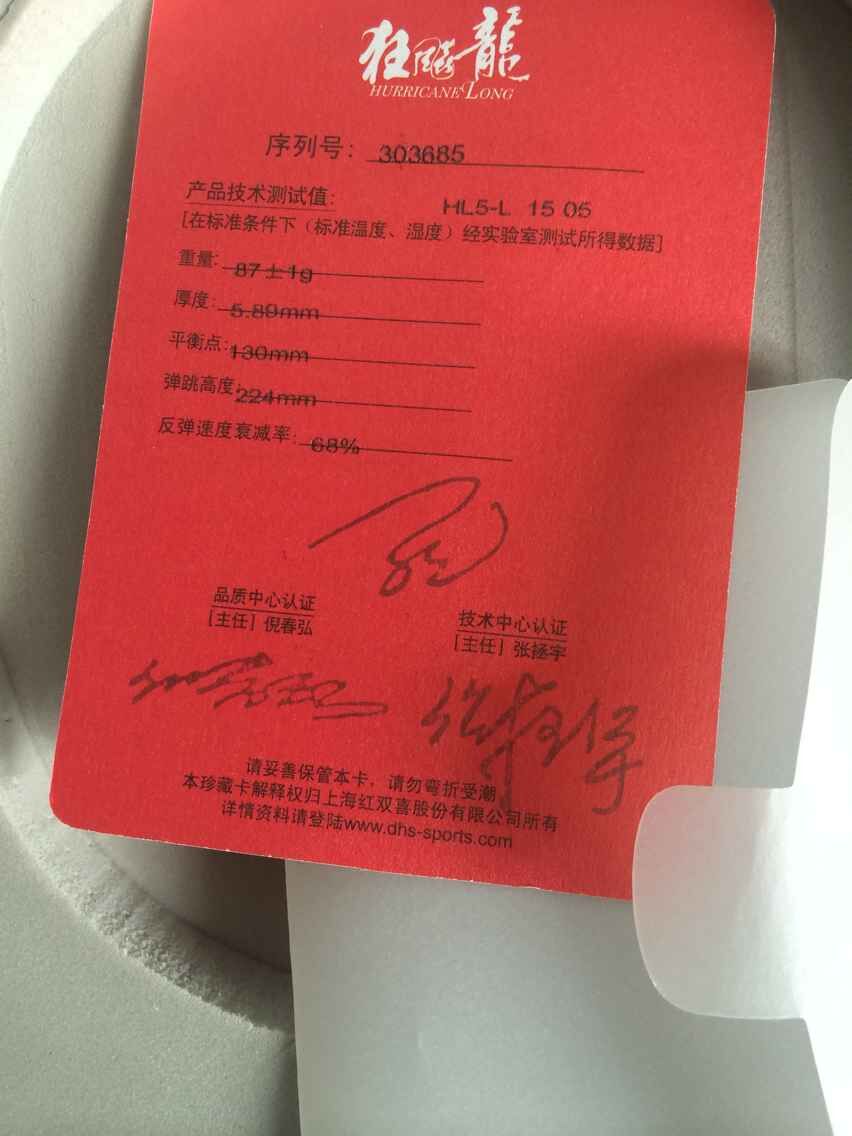 狂飚龍
HURRICANE LONG
序列号：303685
产品技术测试值：HL5-L 15 05
[在标准条件下（标准温度、湿度）经实验室测试所得数据]
重量：87±1g
厚度：5.89mm
平衡点：130mm
弹跳高度：224mm
反弹速度衰减率：68%
品质中心认证
[主任] 倪春弘
技术中心认证
[主任] 张拯宇
请妥善保管本卡，请勿弯折受潮
本珍藏卡解释权归上海红双喜股份有限公司所有
详情资料请登陆www.dhs-sports.com